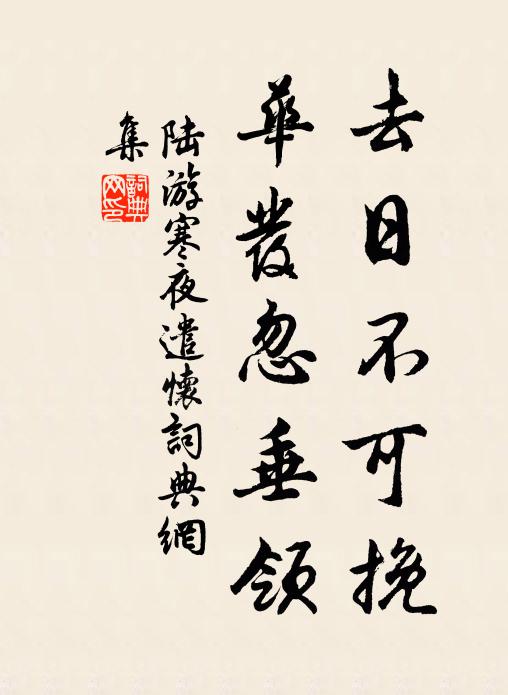 去日不可挽
華發忽垂領
陸游寒夜遣懷詞典網
集
詞典
网印